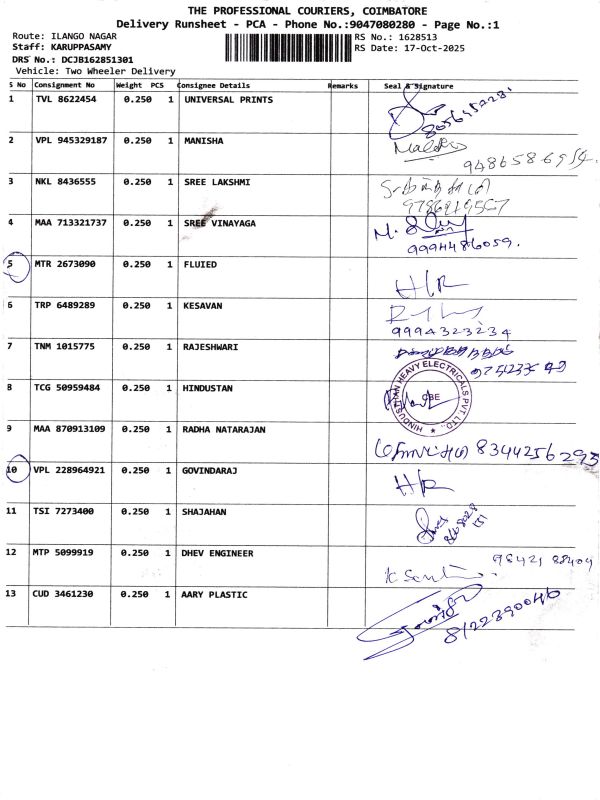 THE PROFESSIONAL COURIERS, COIMBATORE
Delivery Runsheet - PCA - Phone No.:9047080280 - Page No.:1
Route: ILANGO NAGAR RS No.: 1628513
Staff: KARUPPASAMY RS Date: 17-Oct-2025
DRS No.: DCJB162851301
Vehicle: Two Wheeler Delivery
S No Consignment No Weight PCS Consignee Details Remarks Seal & Signature
1 TVL 8622454 0.250 1 UNIVERSAL PRINTS
2 VPL 945329187 0.250 1 MANISHA
9486586954.
3 NKL 8436555 0.250 1 SREE LAKSHMI
4 MAA 713321737 0.250 1 SREE VINAYAGA
9994486059.
5 MTR 2673090 0.250 1 FLUIED
H/R
6 TRP 6489289 0.250 1 KESAVAN
9994323234
7 TNM 1015775 0.250 1 RAJESHWARI
8 TCG 50959484 0.250 1 HINDUSTAN
HINDUSTHAN HEAVY ELECTRICALS PVT. LTD.,
CBE
9 MAA 870913109 0.250 1 RADHA NATARAJAN
8344256295
10 VPL 228964921 0.250 1 GOVINDARAJ
H/R
11 TSI 7273400 0.250 1 SHAJAHAN
12 MTP 5099919 0.250 1 DHEV ENGINEER
98421 88404
13 CUD 3461230 0.250 1 AARY PLASTIC
8122390046